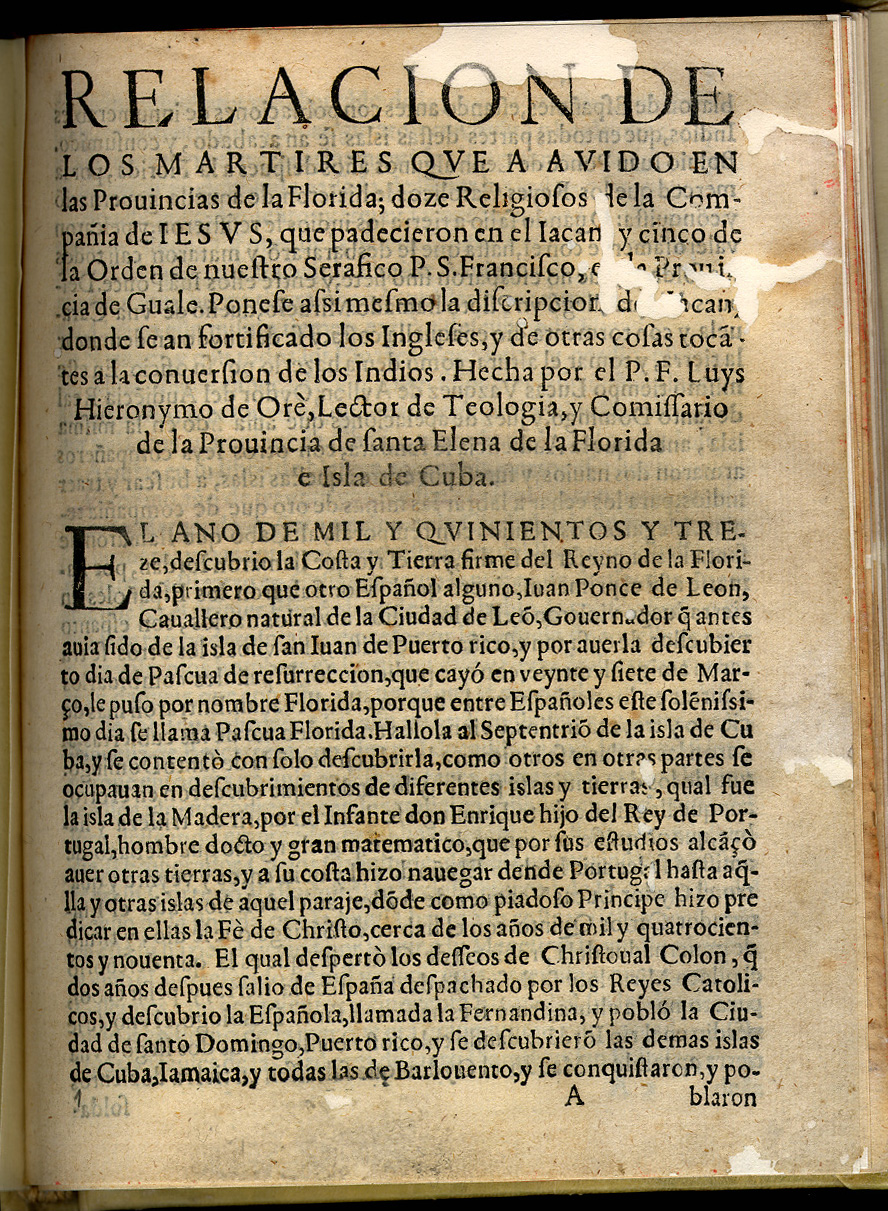 RELACION DE
LOS MARTIRES QVE A AVIDO EN
las Prouincias de la Florida; doze Religioſos de la Com-
pañia de IESVS, que padecieron en el Iacan y cinco de
la Orden de nueſtro Serafico P. S. Franciſco, en la Prouin-
cia de Guale. Poneſe aſsimeſmo la diſcripcion de Iacan,
donde ſe an fortificado los Ingleſes, y de otras coſas tocā-
tes a la conuerſion de los Indios. Hecha por el P. F. Luys
Hieronymo de Orè, Lector de Teologia, y Comiſſario
de la Prouincia de ſanta Elena de la Florida
e Isla de Cuba.
EL ANO DE MIL Y QVINIENTOS Y TRE-
ze, deſcubrio la Coſta y Tierra firme del Reyno de la Flori-
da, primero que otro Eſpañol alguno, Iuan Ponce de Leon,
Cauallero natural de la Ciudad de Leō, Gouernador q̄ antes
auia ſido de la isla de ſan Iuan de Puerto rico, y por auerla deſcubier
to dia de Paſcua de reſurreccion, que cayó en veynte y ſiete de Mar-
ço, le puſo por nombre Florida, porque entre Eſpañoles eſte ſolēniſsi-
mo dia ſe llama Paſcua Florida. Hallola al Septentriō de la isla de Cu
ba, y ſe contentò con ſolo deſcubrirla, como otros en otras partes ſe
ocupauan en deſcubrimientos de diferentes islas y tierras, qual fue
la isla de la Madera, por el Infante don Enrique hijo del Rey de Por-
tugal, hombre docto y gran matematico, que por ſus eſtudios alcāçò
auer otras tierras, y a ſu coſta hizo nauegar dende Portugal haſta aq̄-
lla y otras islas de aquel paraje, dōde como piadoſo Principe hizo pre
dicar en ellas la Fè de Chriſto, cerca de los años de mil y quatrocien-
tos y nouenta. El qual deſpertò los deſſeos de Chriſtoual Colon, q̄
dos años deſpues ſalio de Eſpaña deſpachado por los Reyes Catoli-
cos, y deſcubrio la Eſpañola, llamada la Fernandina, y pobló la Ciu-
dad de ſanto Domingo, Puerto rico, y ſe deſcubrierō las demas islas
de Cuba, Iamaica, y todas las de Barlouento, y ſe conquiſtaron, y po-
1 A blaron